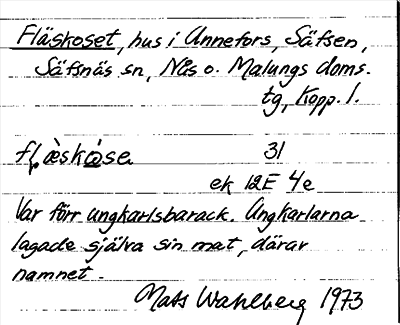 Fläskoset, hus i Annefors, Säfsen,
Säfsnäs sn, Nås o. Malungs doms.
tg, Kopp. l.
fḷæ̀skὼsə 31
ek 12E 4e
Var förr ungkarlsbarack. Ungkarlarna
lagade själva sin mat, därav
namnet.
Mats Wahlberg 1973